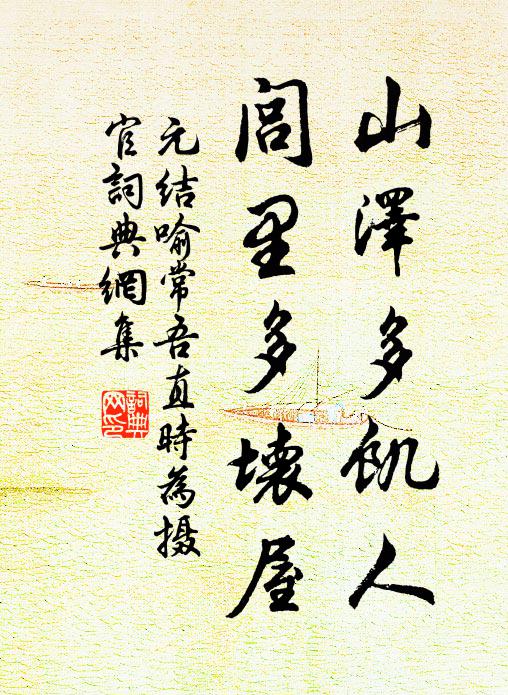 山澤多飢人
閭里多壞屋
元结喻常吾直時為摄
官詞典網集
詞典
网印